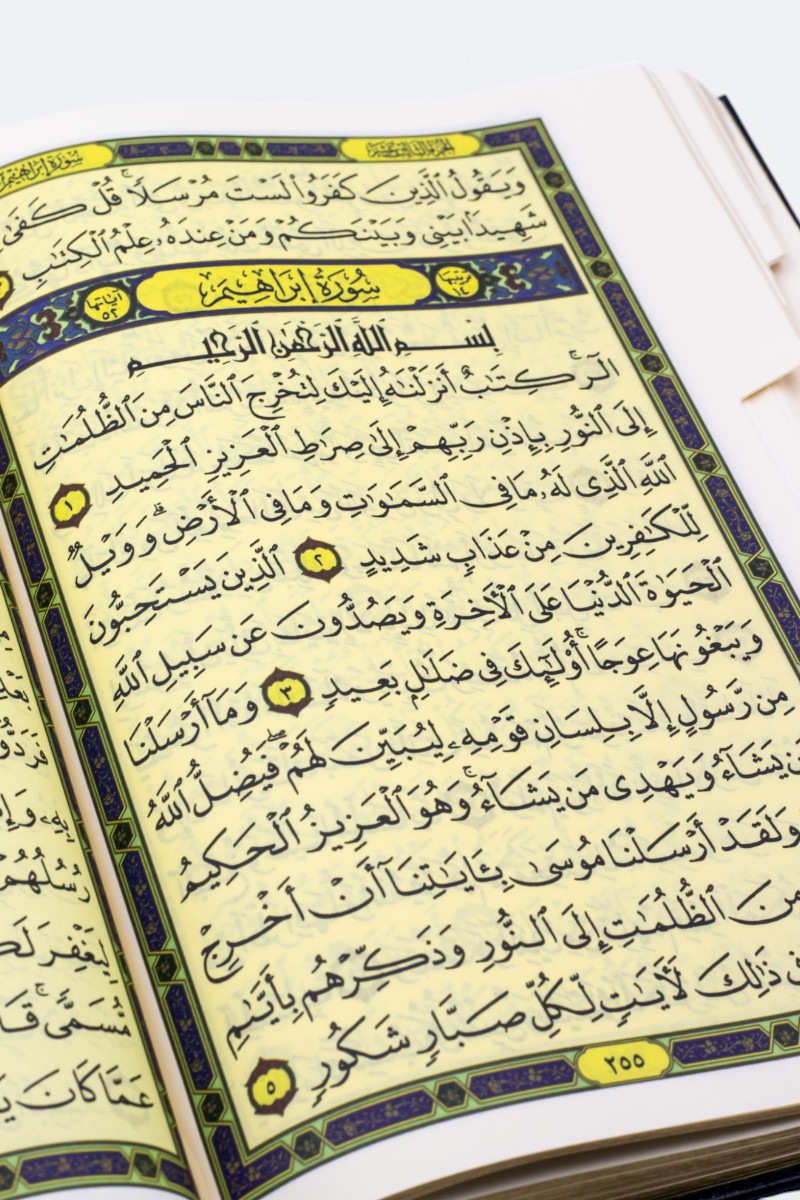 سُورَةُ إِبْرَاهِيمَ
الجزء الثالث عشر
وَيَقُولُ الَّذِينَ كَفَرُوا لَسْتَ مُرْسَلًا ۚ قُلْ كَفَىٰ
شَهِيدًا بَيْنِي وَبَيْنَكُمْ وَمَنْ عِندَهُ عِلْمُ الْكِتَابِ
ترتيبها ١٤
سُورَةُ إِبْرَاهِيمَ
آياتها ٥٢
بِسْمِ اللَّهِ الرَّحْمَٰنِ الرَّحِيمِ
الٓر ۚ كِتَٰبٌ أَنزَلْنَٰهُ إِلَيْكَ لِتُخْرِجَ النَّاسَ مِنَ الظُّلُمَٰتِ
إِلَى النُّورِ بِإِذْنِ رَبِّهِمْ إِلَىٰ صِرَٰطِ الْعَزِيزِ الْحَمِيدِ ١
اللَّهِ الَّذِي لَهُۥ مَا فِي السَّمَٰوَٰتِ وَمَا فِي الْأَرْضِ ۗ وَوَيْلٌ
لِّلْكَٰفِرِينَ مِنْ عَذَابٍ شَدِيدٍ ٢ الَّذِينَ يَسْتَحِبُّونَ
الْحَيَوٰةَ الدُّنْيَا عَلَى الْأَخِرَةِ وَيَصُدُّونَ عَن سَبِيلِ اللَّهِ
وَيَبْغُونَهَا عِوَجًا ۚ أُو۟لَٰٓئِكَ فِي ضَلَٰلٍ بَعِيدٍ ٣ وَمَآ أَرْسَلْنَا
مِن رَّسُولٍ إِلَّا بِلِسَانِ قَوْمِهِۦ لِيُبَيِّنَ لَهُمْ ۖ فَيُضِلُّ اللَّهُ
مَن يَشَآءُ وَيَهْدِي مَن يَشَآءُ ۚ وَهُوَ الْعَزِيزُ الْحَكِيمُ
وَلَقَدْ أَرْسَلْنَا مُوسَىٰ بِـَٔايَٰتِنَآ أَنْ أَخْرِجْ
مِنَ الظُّلُمَٰتِ إِلَى النُّورِ وَذَكِّرْهُم بِأَيَّىٰمِ
ذَٰلِكَ لَأٓيَٰتٍ لِّكُلِّ صَبَّارٍ شَكُورٍ ٥
٢٥٥
رُسُلُهُمْ
لِيَغْفِرَ لَكُم
مُّسَمًّى ۚ
عَمَّا كَانَ